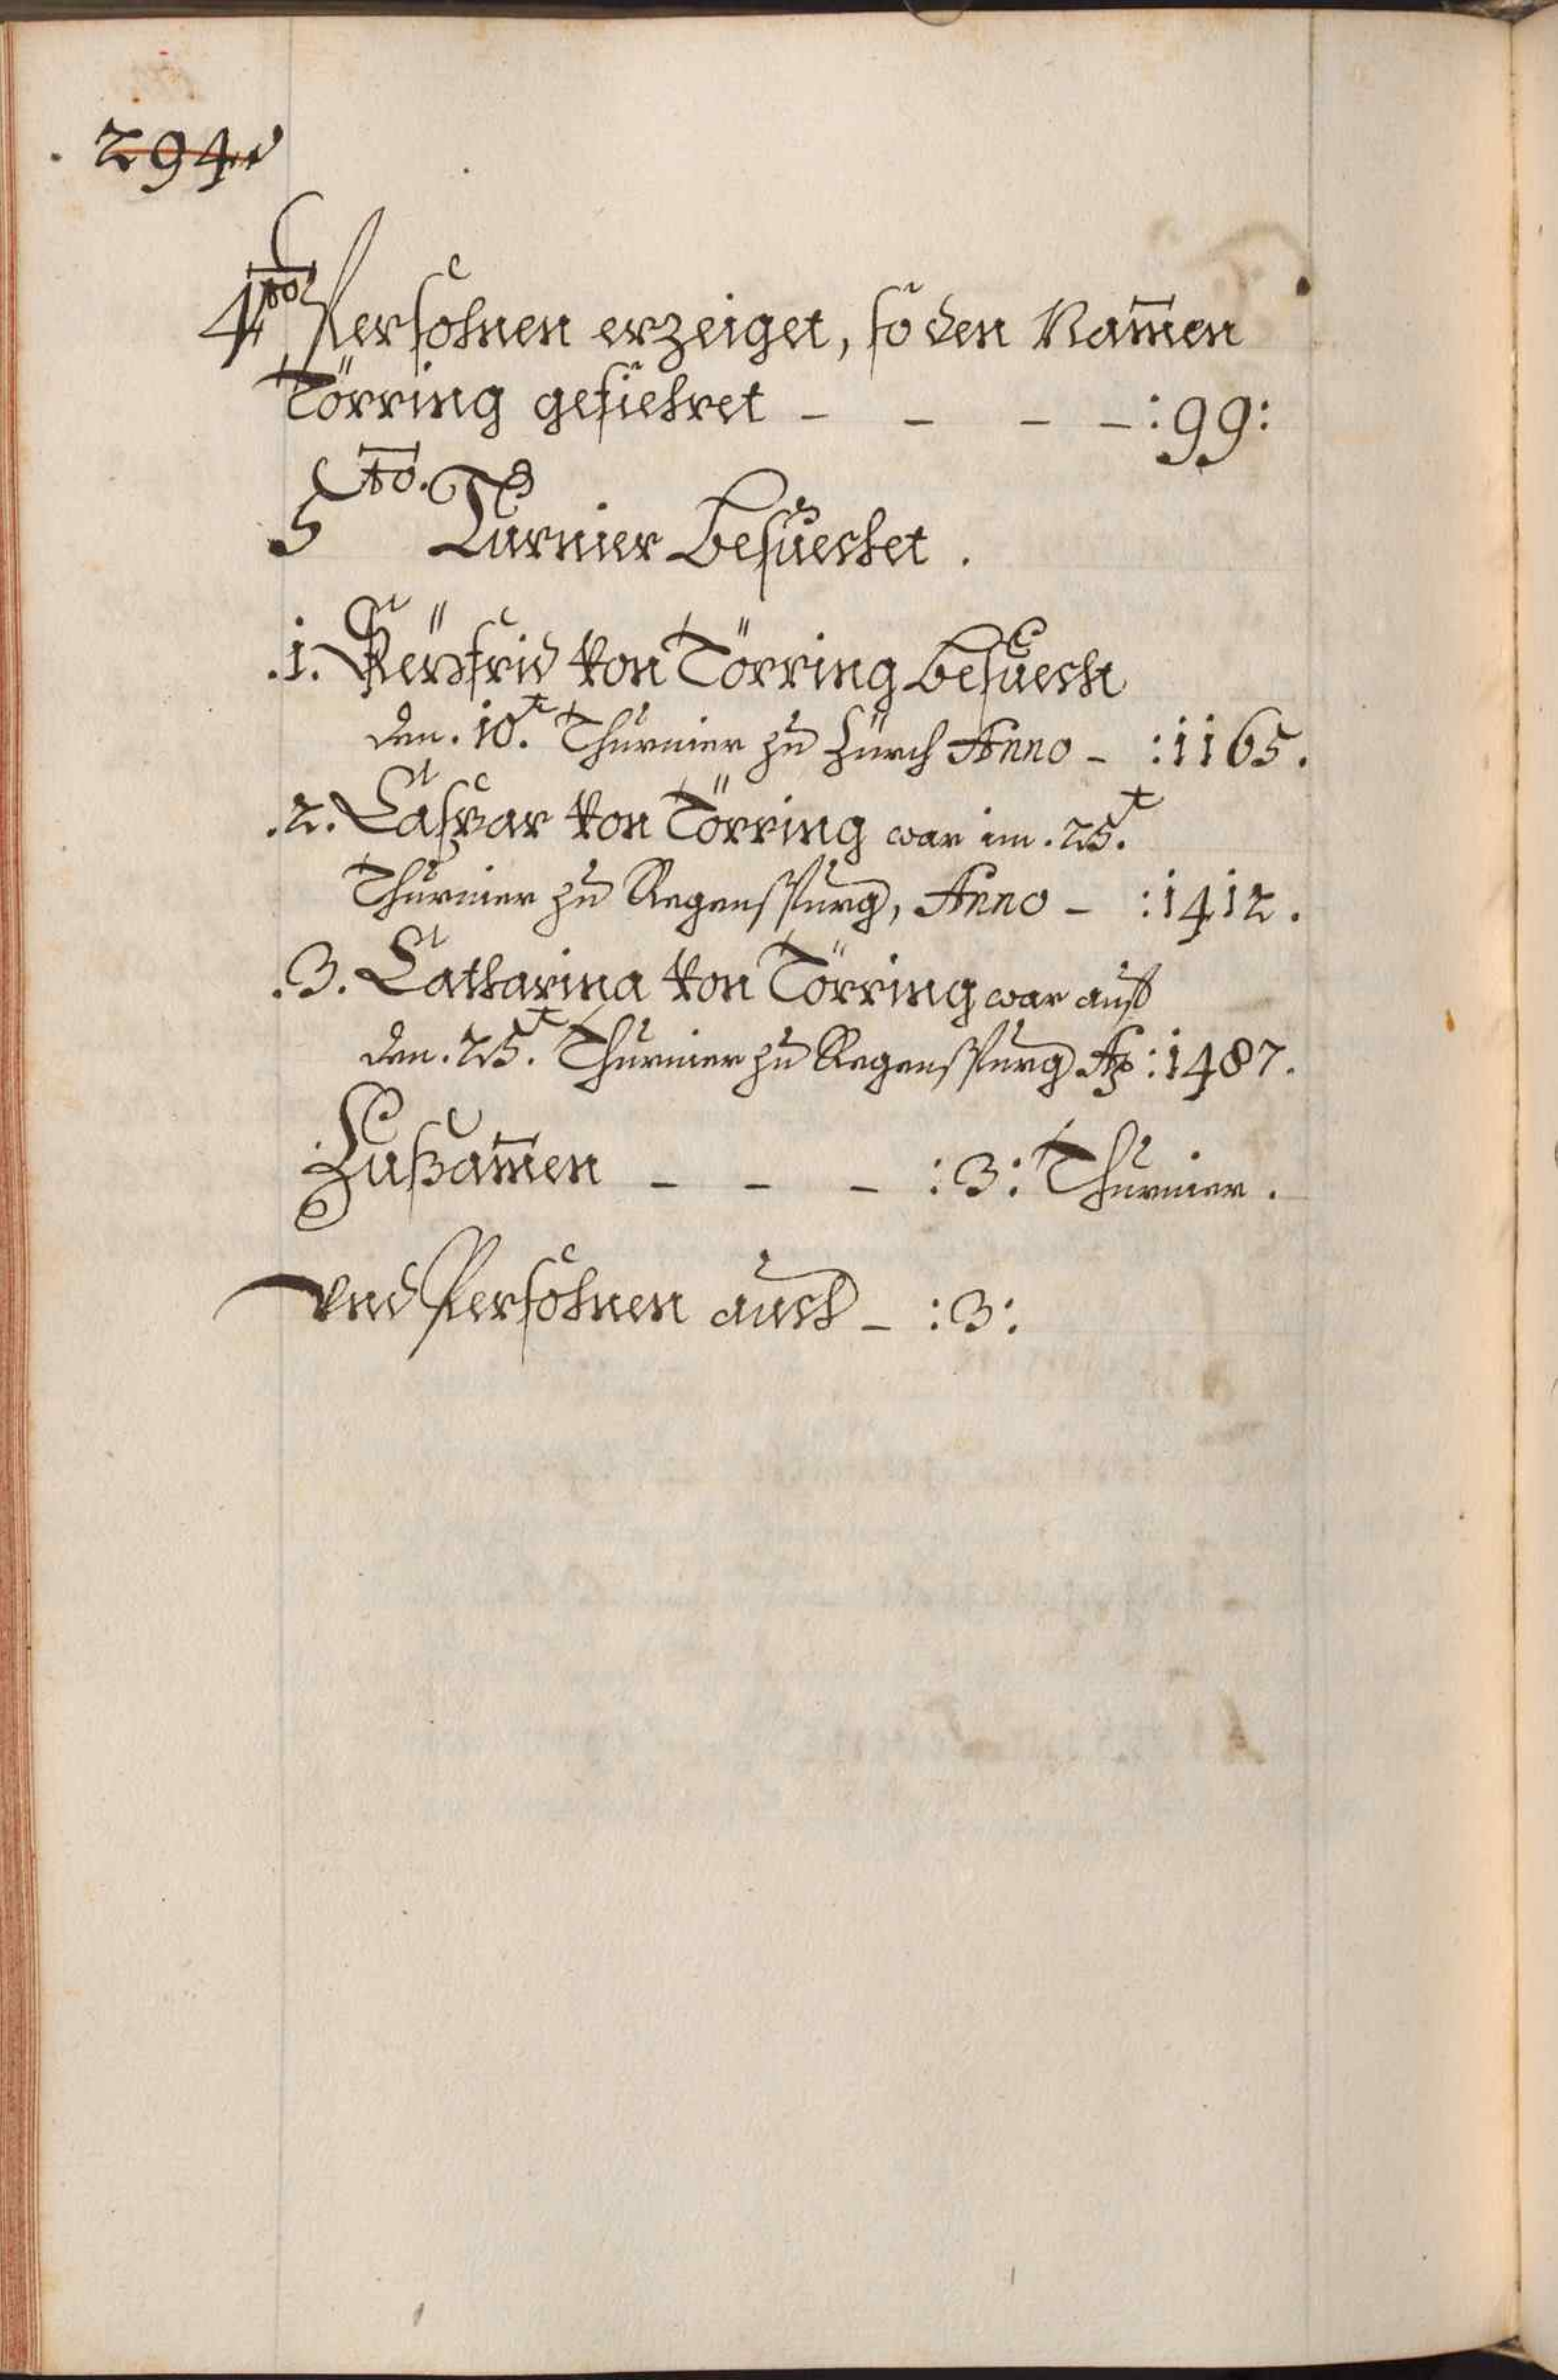 . 294.
4to Persohnen erzeiget, so den Nam̄en
Törring gefiehret – – – – :99:
5to. Turnier Besuechet .
.1. Seÿfrid von Törring Besuecht
den .10.t Thurnier zu Zürch Anno – :1165.
.2. Caspar von Törring war im .25.t
Thurnier zu Regenspurg, Anno – :1412.
.3. Catharina von Törring war auf
den .25.t Thurnier zu Regenspurg Ao :1487.
Zusam̄en – – – :3: Thurnier.
Vnd Persohnen auch – :3: